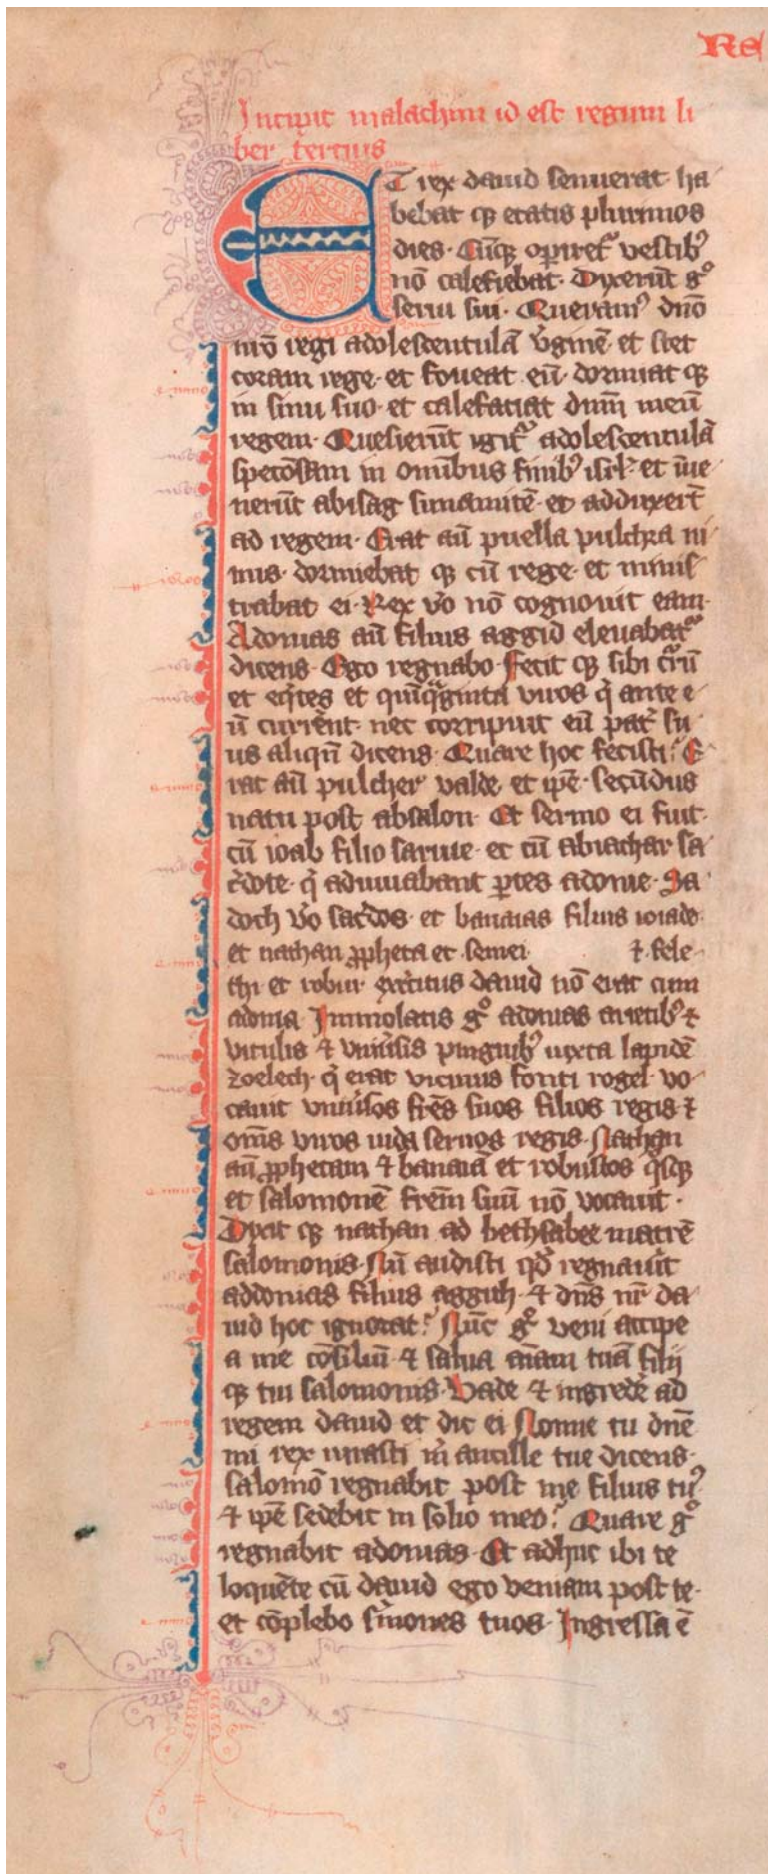 Re
Incipit malachim id est regum li
ber tercius
ET rex dauid senuerat ha
bebat qꝫ etatis plurimos
dies. Cūqꝫ opiret᷑ vestibꝰ
nō calefiebat. Dixerūt gͦ
serui sui. Queramꝰ dn̄o
nr̄o regi adolescentulā v̓ginē et stet
coram rege. et foueat eū. dormiat qꝫ
in sinu suo. et calefatiat dnm̄ meū
regem. Quesierūt igit᷑ adolescentulā
speciosam in omībus finibꝰ isrl̄. et īue
nerūt abisag sunamitē. et adduxer̄t
ad regem. Erat aū puella pulchra ni
mis. dormiebat qꝫ cū rege. et minis
trabat ei. Rex v̓o nō cognouit eam.
Adonias aū filius aggid eleuabat᷑
dicens. Ego regnabo. Fecit qꝫ sibi cr̄rū
et eq̄tes et quīq̄ginta viros q̇ ante e
ū currēnt. nec corripuit eū pat̓ su
us aliqn̄ dicens. Quare hoc fecisti? E
rat aū pulcher valde. et ip̄e. secūdus
natu post absalon. Et sermo ei fuit.
cū ioab filio saruie. et cū abiathar sa
c̓dote. q̇ adiuuabant ꝑtes adonie. Sa
doch v̓o sac̓dos. et banaias filius ioiade.
et nathan ꝓpheta et semei. ⁊. fele
thi et robur exercitus dauid nō erat cum
adonia. Immolatis gͦ adonias arietibꝰ ⁊
vitulis ⁊ vniu̓sis pinguibꝰ iuxta lapidē
zoelech. q̇ erat vicinus fonti rogel. vo
cauit vniu̓sos fr̄es suos filios regis ⁊
om̄s viros iuda seruos regis. Nathan
aū ꝓphetam ⁊ banaiā et robustos q̇sqꝫ
et salomonē fr̄em suū nō vocauit.
Dixit qꝫ nathan ad bethsabee matrē
salomonis. Nū audisti qd̄ regnau̓it
addonias filius aggith. ⁊ dn̄s nr̄ da
uid hoc ignorat? Nūc gͦ veni accipe
a me cōsiliū ⁊ salua aīam tuā filij
qꝫ tui salomonis. Vade ⁊ ingredē ad
regem dauid et dic ei Nonne tu dn̄e
mi rex iurasti m̓ ancille tue dicens.
salomō regnabit post me filius tuꝰ
⁊ ip̄e sedebit in solio meo? Quare gͦ
regnabit adonias. Et adhuc ibi te
loquēte cū dauid ego veniam post te.
et cōplebo s̓mones tuos. Ingressa ē